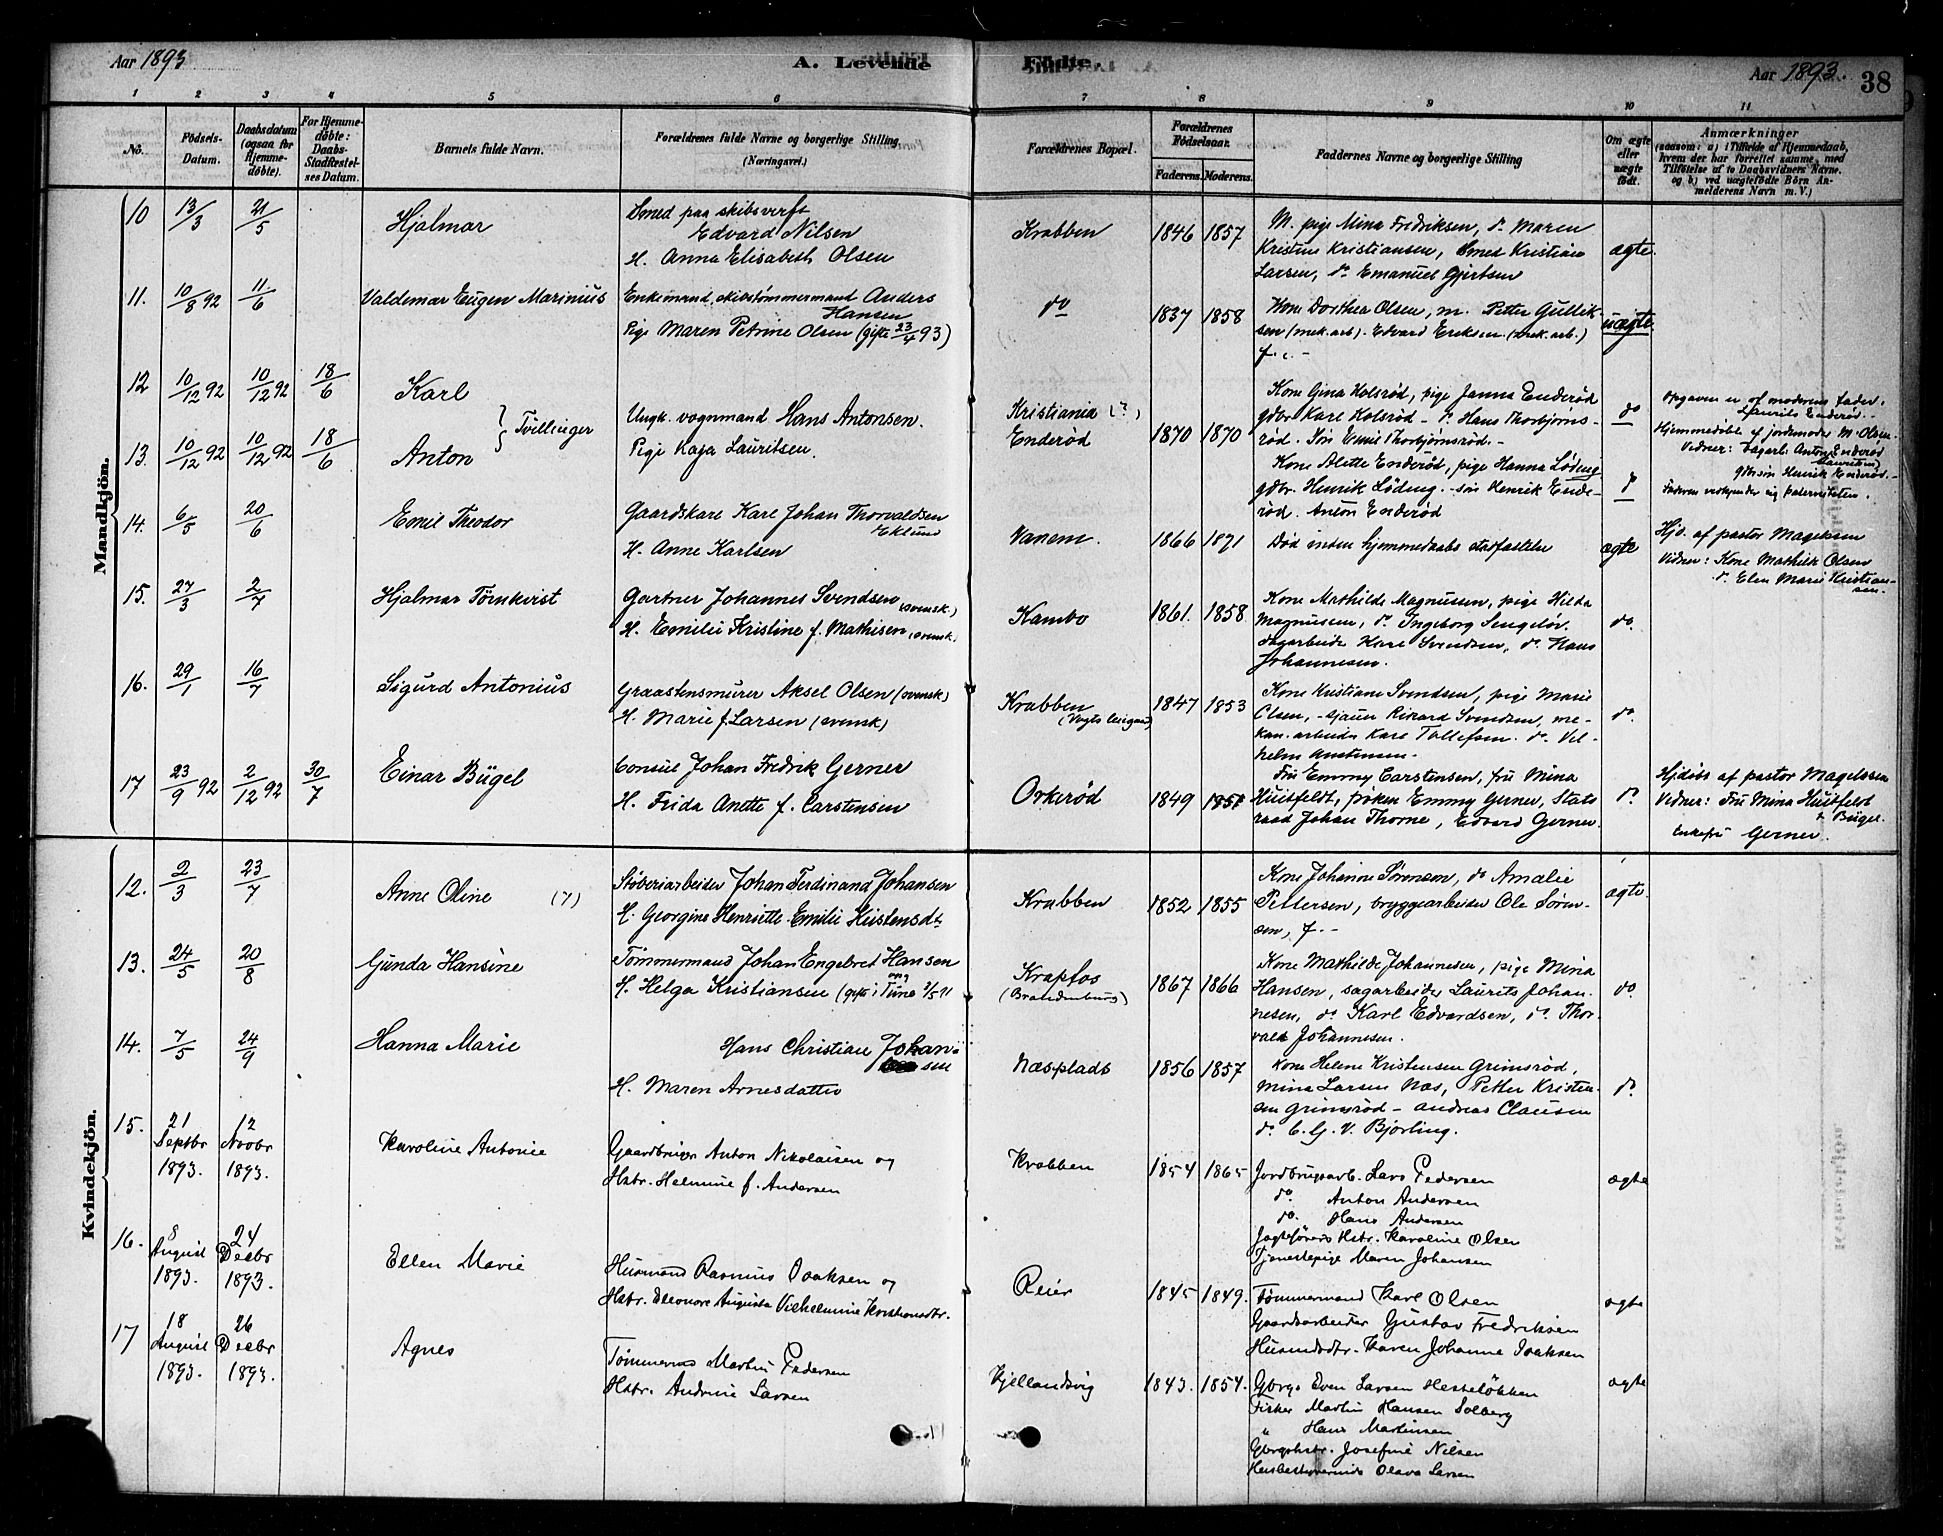 Aar 1893
A. Levende
Fødte.
Aar 1893. 38
1 2 3 4 5 6 7 8 9 10 11
No. Fødsels-Datum. Daabsdatum (ogsaa for Hjemme-døbte). For Hjemme-døbte: Daabs-Stadfæstel-ses Datum. Barnets fulde Navn. Forældrenes fulde Navne og borgerlige Stilling (Næringsvei.) Forældrenes Bopæl. Forældrenes Fødselsaar. Faderens. Moderens. Faddernes Navne og borgerlige Stilling Om ægte eller uægte født. Anmærkninger
(saasom: a) i Tilfælde af Hjemmedaab, hvem der har forrettet samme, med Tilføielse af to Daabsvidners Navne, og b) ved uægtefødte Børn An-melderens Navn m. V.)
Mandkjön.
10 13/3 21/5 Hjalmar Smed paa skibsverft
Edvard Nilsen
H. Anna Elisabeth Olsen
Krabben 1846 1857 M. pige Mina Fredriksen, do Maren
Kristine Kristiansen, Smed Kristian
Larsen, do Emanuel Gjertsen
ægte.
11. 10/8 92 11/6 Valdemar Eugen Marinius Enkemand, skibstømmermand Anders
Hansen
Pige Maren Petrine Olsen (gifte 23/4 93)
do 1837 1858 Kone Dorthea Olsen, m. Petter Gullik-
sen (mek. arb). Edvard Eriksen (mek. arb.)
f. -
uægte.
12 10/12 92 10/12 92 18/6 Karl
} Tvillinger
13. 10/12 92 10/12 92 18/6 Anton
Ungk. vognmand Hans Antonsen.
Pige Kaja Lauritsen.
Kristiania (?)
Enderød 1870 1870
Kone Gina Kolsrød, pige Janna Enderød
gdbr Karl Kolsrød - do Hans Thorbjørns-
rød. Søn Emil Thorbjørnsrød. -
do
Kone Alette Enderød, pige Hanna Löding
gdbr. Henrik Löding. søn Henrik Ende-
rød. Anton Enderød
do
Opgaven er af moderens fader.
Laurits Enderød. -
Hjemmedøbt af jordemoder M. Olsen.
Vidner: Dagarb. Anton Enderød
Lauritsen
gdb. søn Henrik Enderød. -
Faderen vedkjender sig paterniteten.
14. 6/5 20/6 Emil Theodor Gaardskarl Karl Johan Thorvaldsen
Eklund
H. Anne Karlsen
Vanem. 1866 1871 Død inden hjemmedaabs stadfæstelse ægte
Hjd. af pastor Magelssen
Vidner: Kone Mathilde Olsen
do Elen Marie Kristian-
sen.
15. 27/3 2/7 Hjalmar Törnkvist Gartner Johannes Svendsen (svensk.)
H. Emilie Kristine f. Mathisen (svensk.)
Kambo 1861. 1858. Kone Mathilde Magnussen, pige Hilda
Magnussen, do Ingeborg Sengeløv.
Dagarbeider Karl Svendsen, do Hans
Johannesen.
do.
16. 29/1 16/7 Sigurd Antonius Graastensmurer Aksel Olsen (svensk)
H. Marie f. Larsen (svensk)
Krabben 1847 1853 Kone Kristiane Svendsen, pige Marie
Olsen, - sjauer Rikard Svendsen, me-
kan. arbeider Karl Tollefsen. do Vil-
helm
do.
17 23/9 92 2/12 92 30/7 Einar Bügel Consul Johan Fredrik Gerner
H. Frida Anette f. Carstensen
Orkerød 1849 1857 Fru Emmy Carstensen, fru Mina
Huitfeldt, frøken Emmy Gerner, Stats
raad Johan Thorne, Edvard Gerner.
do.
Hjdøbt af pastor Magelssen
Vidner: Fru Mina Huitfeldt
f. Bügel.
Enkefru Gerner.
Kvindekjön.
12. 2/3 23/7 Anne Oline (7) Støberiarbeider Johan Ferdinand Johansen
H. Georgine Henriette Emilie Kristensdt.
Krabben 1852 1855 Kone Johanne Sørensen, do Amalie
Pettersen, bryggearbeider Ole Søren-
sen, f. -
ægte
13. 24/5 20/8 Gunda Hansine Tømmermand Johan Engebret Hansen
H. Helga Kristiansen (gifte i Tune
Krapfos
(Brandenburg) 1867 1866 Kone Mathilde Johannesen, pige Mina
Hansen, sagarbeider Laurits Johan-
nesen, do Karl Edvardsen, do. Thor-
vald Johannesen.
do.
14. 7/5 24/9 Hanna Marie Hans Christian Johan-
sen
H. Maren Arnesdatter
Næsplads 1856 1857 Kone Helene Kristensen Grimsrød,
Mina Larsen Næs, Petter Kristen-
sen Grimsrød - Andreas Clausen
do. C. G. V. Bjorling.
do.
15. 21 Septbr 1893. 12 Novbr 1893. Karoline Antonie Gaardbruger Anton Nikolaisen og
Hstr. Helmine f. Andersen
Krabben 1854 1865 Jordbrugsarb. Lars Pedersen
do. Anton Andersen
do. Hans Andersen
Jagtførers Hstr. Karoline Olsen
Tjenestepige Maren Johansen
ægte
16. 8 August 1893. 24 Decbr 1893. Ellen Marie Husmand Rasmus Isaksen og
Hstr. Eleonore Augusta Vilhelmine Kristiansdtr.
Reier 1845 1849. Tømmermand Karl Olsen
Gaardsarbeider Gustav Fredriksen
Husmdsdtr. Karen Johanne Isaksen
ægte
17 18 August 1893. 26 Decbr 1893. Agnes Tømmerm. Martin Pedersen
Hstr. Andrine Larsen
Kjellandsvig 1843. 1854. Gbrg. Even Larsen Hesteløkken
Fisker Martin Hansen Solberg
" Hans Martinsen
Gbrgshstr. Josefine Nilsen
Husbestyrerinde Olava Larsen
ægte